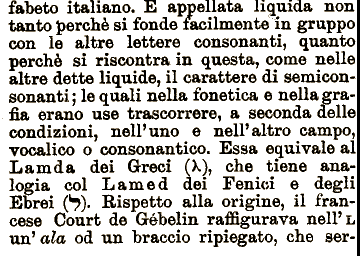 fabeto italiano. È appellata liquida non
tanto perchè si fonde facilmente in gruppo
con le altre lettere consonanti, quanto
perchè si riscontra in questa, come nelle
altre dette liquide, il carattere di semicon-
sonanti; le quali nella fonetica e nella gra-
fia erano use trascorrere, a seconda delle
condizioni, nell'uno e nell'altro campo,
vocalico o consonantico. Essa equivale al
Lamda dei Greci (λ), che tiene ana-
logia col Lamed dei Fenici e degli
Ebrei (ל). Rispetto alla origine, il fran-
cese Court de Gébelin raffigurava nell'L
un' ala od un braccio ripiegato, che ser-